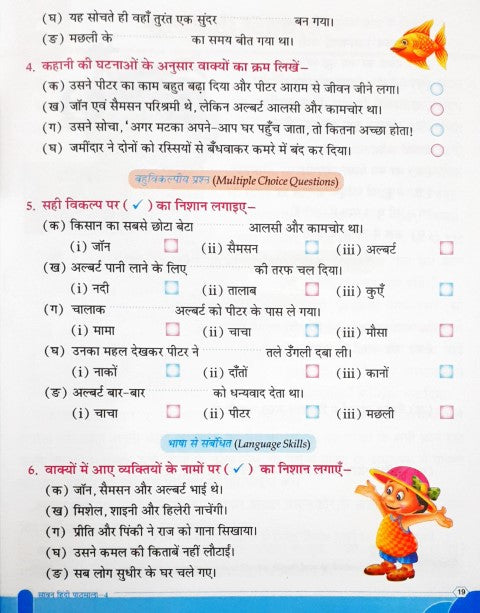 (घ) यह सोचते ही वहाँ तुरंत एक सुंदर ............ बन गया।
(ङ) मछली के ............ का समय बीत गया था।
4. कहानी की घटनाओं के अनुसार वाक्यों का क्रम लिखें–
(क) उसने पीटर का काम बहुत बढ़ा दिया और पीटर आराम से जीवन जीने लगा।
(ख) जॉन एवं सैमसन परिश्रमी थे, लेकिन अल्बर्ट आलसी और कामचोर था।
(ग) उसने सोचा, 'अगर मटका अपने-आप घर पहुँच जाता, तो कितना अच्छा होता!
(घ) जमींदार ने दोनों को रस्सियों से बँधवाकर कमरे में बंद कर दिया।
बहुविकल्पीय प्रश्न (Multiple Choice Questions)
5. सही विकल्प पर (✓) का निशान लगाइए–
(क) किसान का सबसे छोटा बेटा ............ आलसी और कामचोर था।
(i) जॉन (ii) सैमसन (iii) अल्बर्ट
(ख) अल्बर्ट पानी लाने के लिए ............ की तरफ चल दिया।
(i) नदी (ii) तालाब (iii) कुएँ
(ग) चालाक ............ अल्बर्ट को पीटर के पास ले गया।
(i) मामा (ii) चाचा (iii) मौसा
(घ) उनका महल देखकर पीटर ने ............ तले उँगली दबा ली।
(i) नाकों (ii) दाँतों (iii) कानों
(ङ) अल्बर्ट बार-बार ............ को धन्यवाद देता था।
(i) चाचा (ii) पीटर (iii) मछली
भाषा से संबंधित (Language Skills)
6. वाक्यों में आए व्यक्तियों के नामों पर (✓) का निशान लगाएँ–
(क) जॉन, सैमसन और अल्बर्ट भाई थे।
(ख) मिशेल, शाइनी और हिलेरी नाचेंगी।
(ग) प्रीति और पिंकी ने राज को गाना सिखाया।
(घ) उसने कमल की किताबें नहीं लौटाईं।
(ङ) सब लोग सुधीर के घर चले गए।
हिंदी पाठमाला–4
19